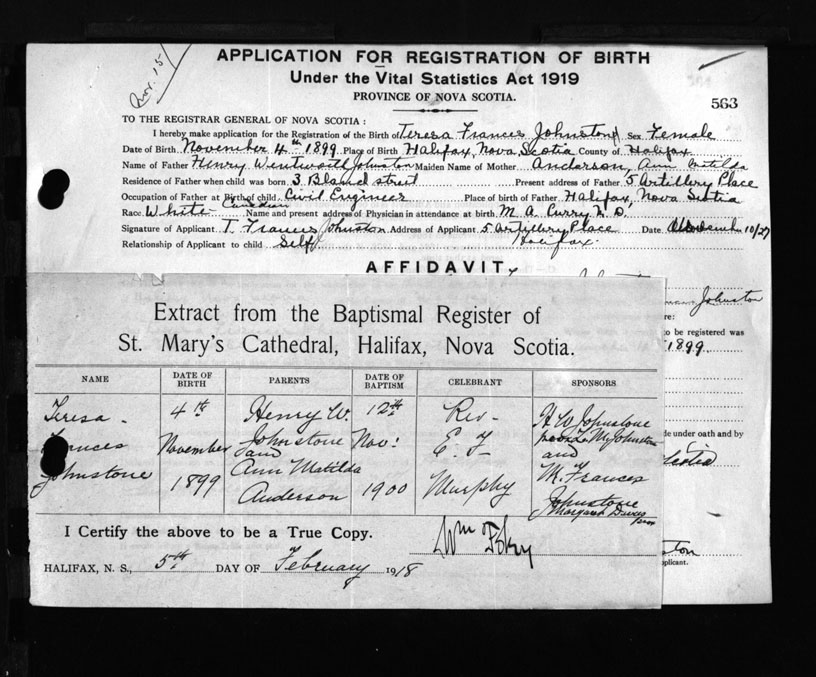 Nov. 15/
APPLICATION FOR REGISTRATION OF BIRTH
Under the Vital Statistics Act 1919
PROVINCE OF NOVA SCOTIA.
563
TO THE REGISTRAR GENERAL OF NOVA SCOTIA:
I hereby make application for the Registration of the Birth of Teresa Frances Johnstone Sex Female
Date of Birth November 4th 1899 Place of Birth Halifax, Nova Scotia County of Halifax
Name of Father Henry Wentworth Johnston Maiden Name of Mother Anderson, Ann Matilda
Residence of Father when child was born 3 Bland street Present address of Father 5 Artillery Place
Occupation of Father at Birth of child Civil Engineer Place of birth of Father Halifax, Nova Scotia
Race White Canadian Name and present address of Physician in attendance at birth M. A. Curry M. D.
Signature of Applicant T. Frances Johnston Address of Applicant 5 Artillery Place Halifax. Date November 10/27
Relationship of Applicant to child Self
AFFIDAVIT
Johnston
re:
to be registered was
1899
Extract from the Baptismal Register of
St. Mary's Cathedral, Halifax, Nova Scotia.
NAME DATE OF BIRTH PARENTS DATE OF BAPTISM CELEBRANT SPONSORS
Teresa 4th Henry W. 12th Rev. H W Johnstone
Frances November Johnstone and Nov: E. F. and
Johnstone 1899 Ann Matilda Anderson 1900 Murphy M. Frances Johnstone
de under oath and by
Scotia
I Certify the above to be a True Copy.
Wm Foley
HALIFAX, N. S., 5th DAY OF February 1918
ston
pplicant.